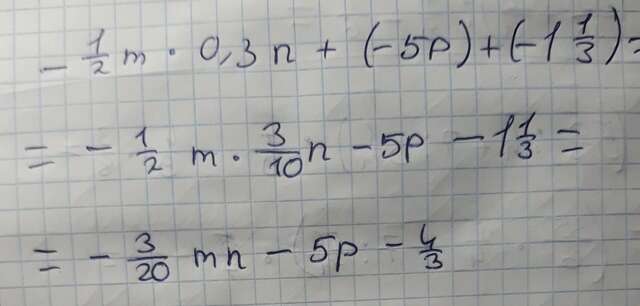 - 1/2 m · 0,3 n + (-5p) + (-1 1/3) =
= - 1/2 m · 3/10 n - 5p - 1 1/3 =
= - 3/20 mn - 5p - 4/3